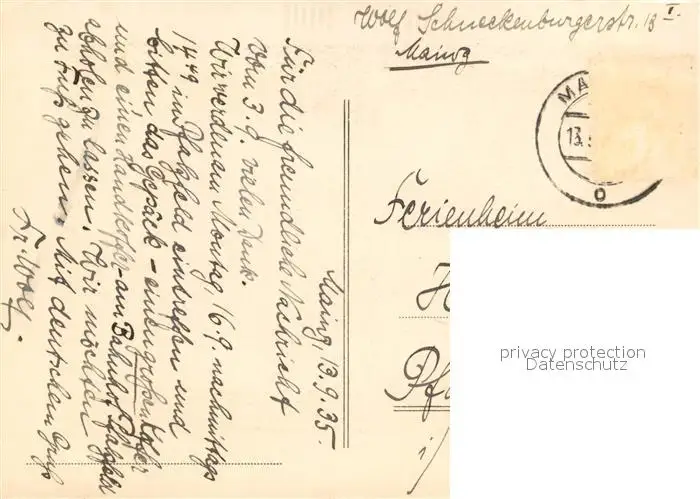 Wolf, Schneckenburgerstr. 13 I.
Mainz
MA
13.
Mainz, 13.9.35.
Für die freundliche Nachricht
vom 3.9. vielen Dank.
Wir werden am Montag, 16.9. nachmittags
14⁴⁹ in Pfalzfeld eintreffen und
bitten das Gepäck - einen großen Koffer
und einen Handkoffer - am Bahnhof Pfalzfeld
abholen zu lassen. Wir möchten
zu Fuß gehen. Mit deutschem Gruß
Fr. Wolf.
Ferienheim
H
Pfa
i/
privacy protection
Datenschutz